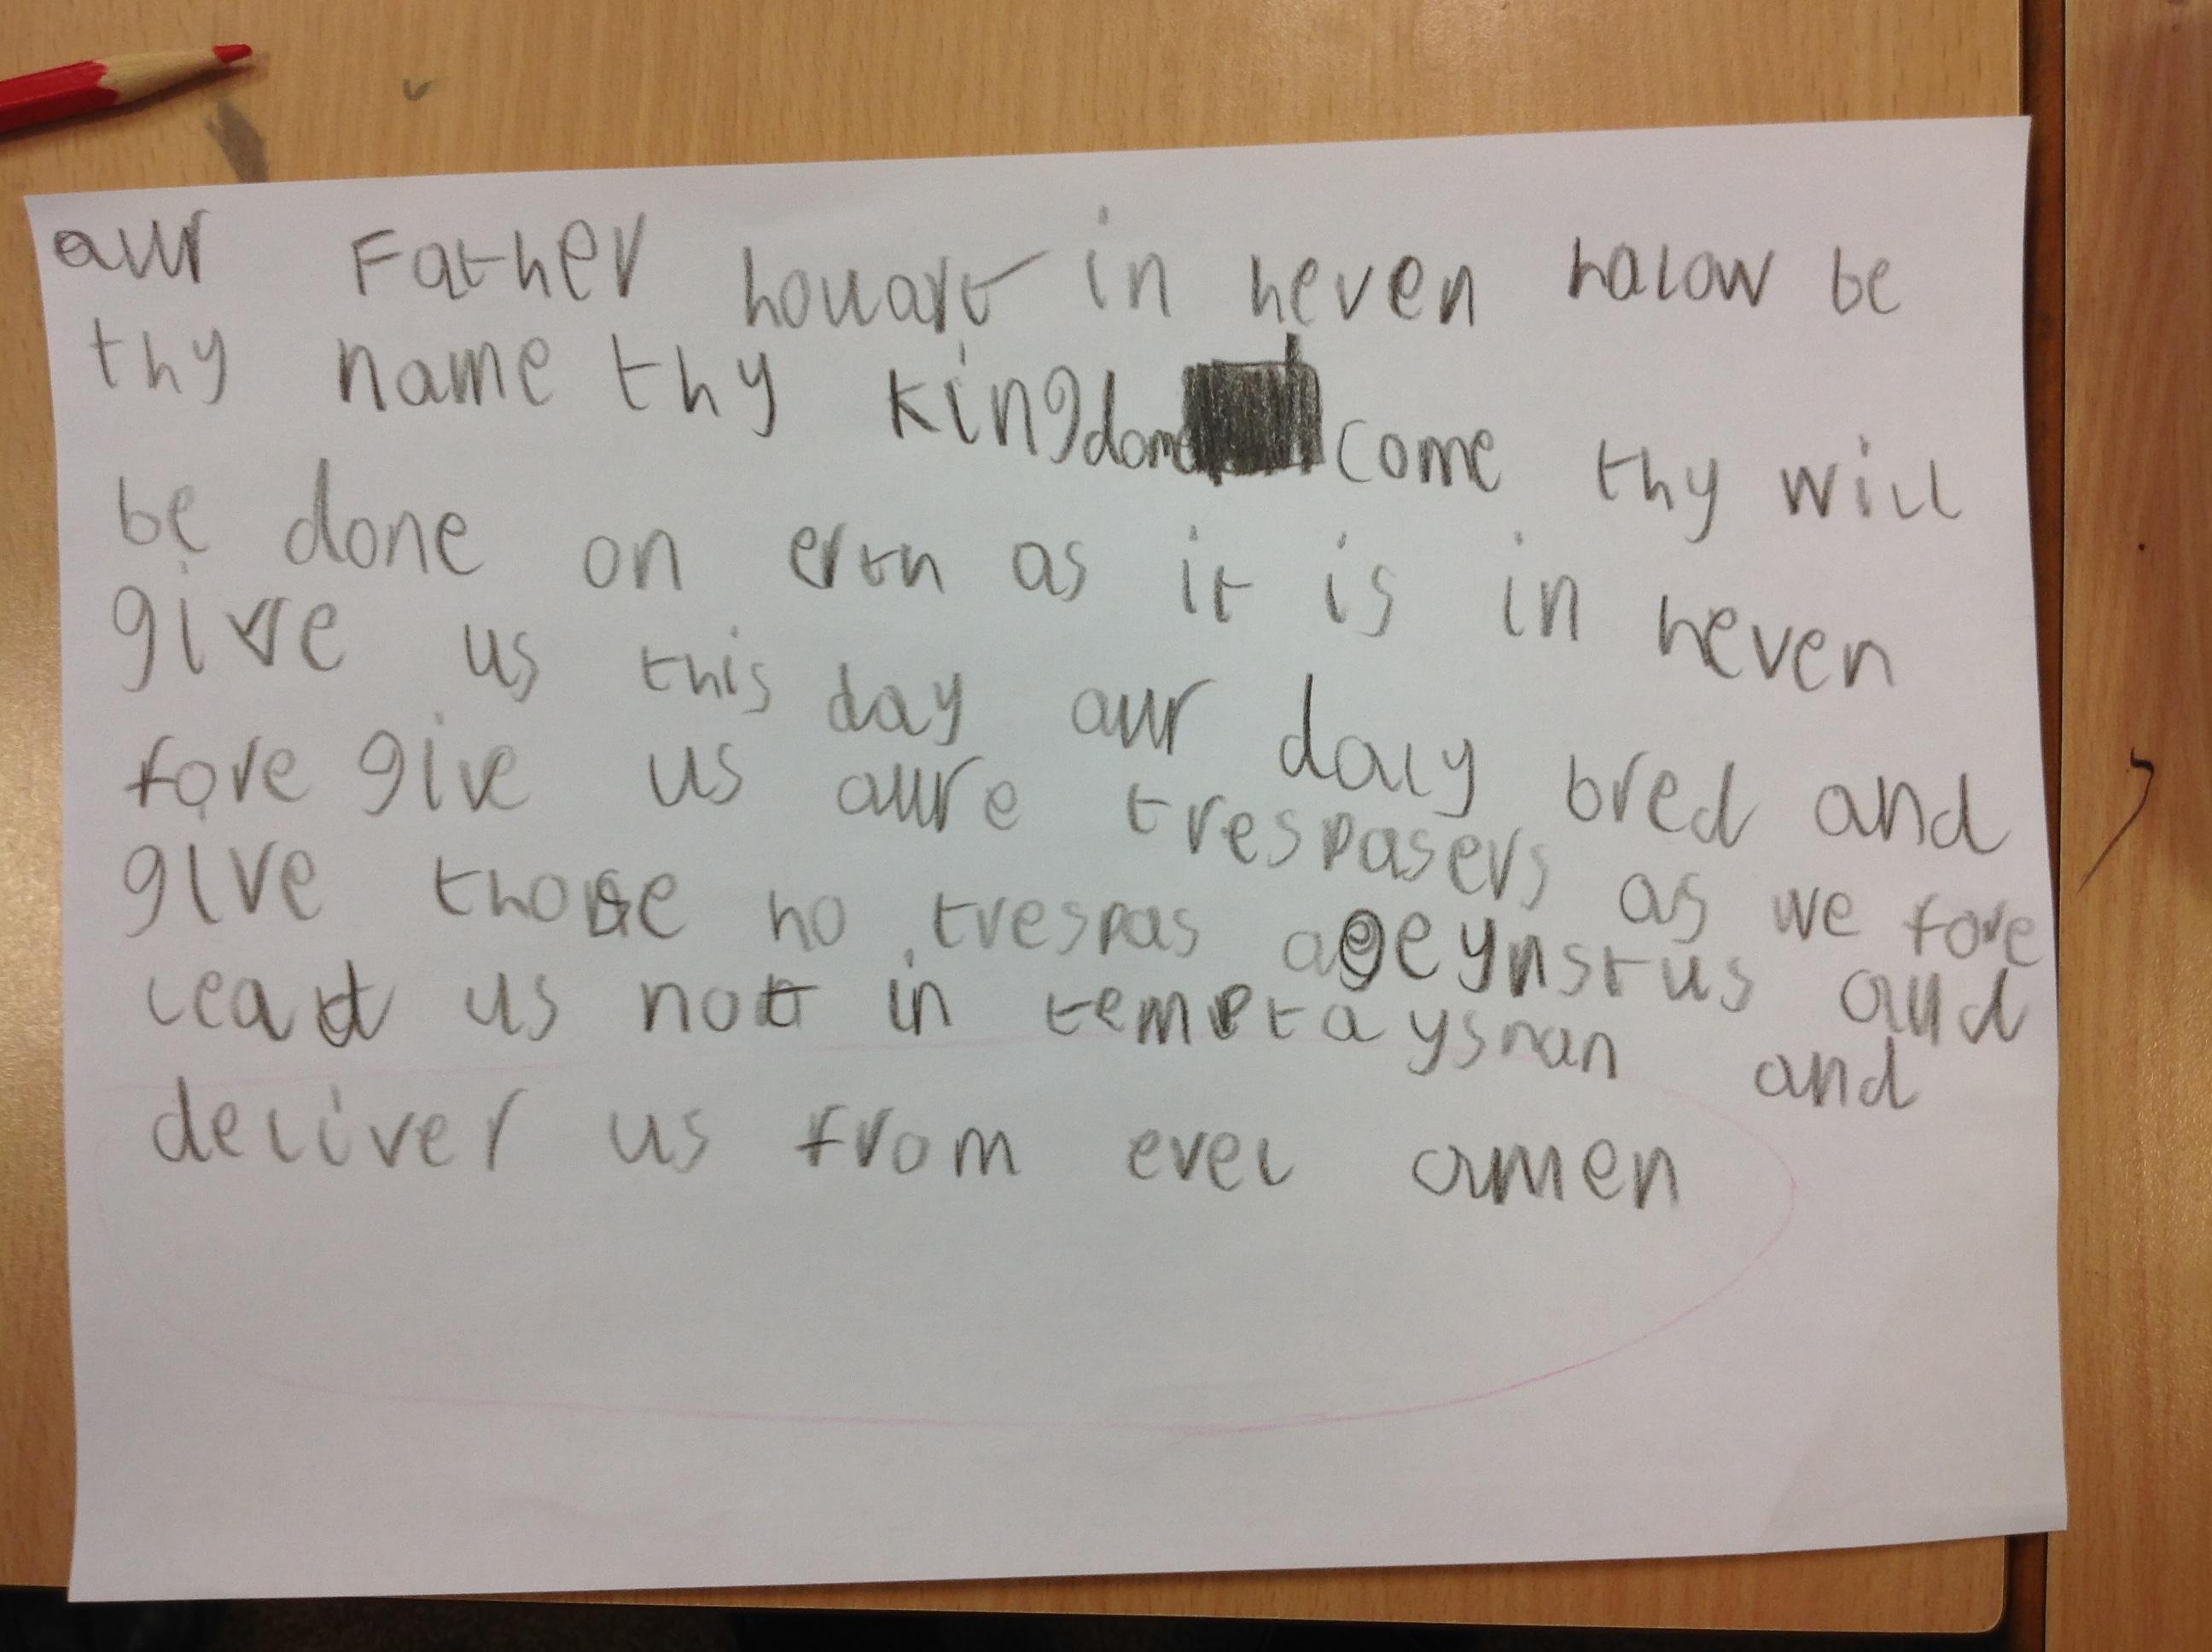 aur Father houart in heven halow be
thy name thy kingdome come thy will
be done on erth as it is in heven
give us this day aur daly bred and
fore give us aure trespasers as we fore
give those ho trespas ageynst us and
lead us not in temptayshan and
deliver us from evel amen